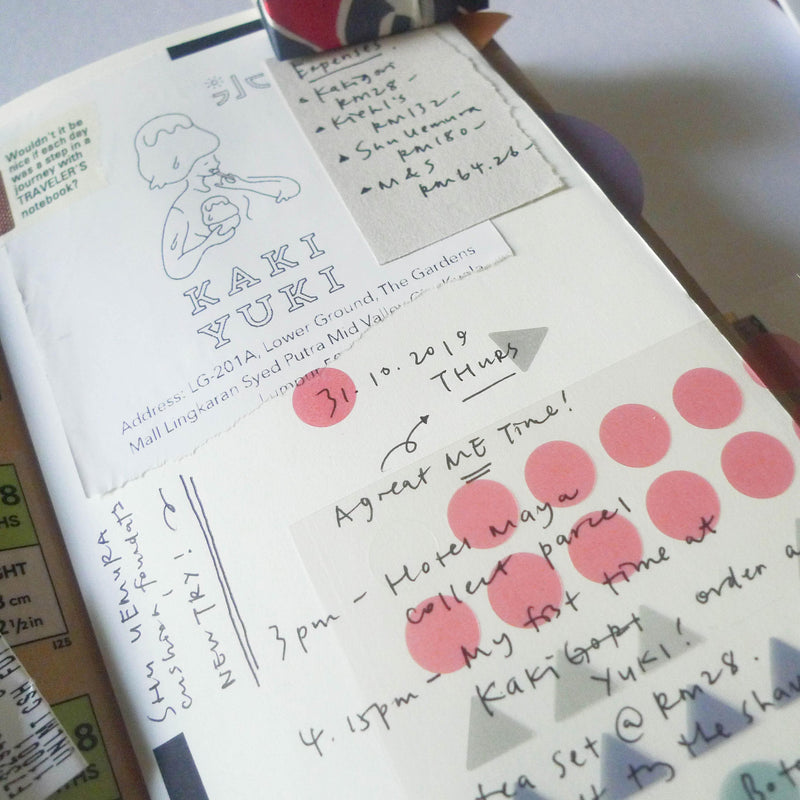 Wouldn't it be
nice if each day
was a step in a
journey with
TRAVELER'S
notebook?
KAKI
YUKI
Address: LG-201A, Lower Ground, The Gardens
Mall Lingkaran Syed Putra Mid Valley
Expenses.
Kakigori
RM28-
Kiehl's
RM132-
Shu Uemura
RM180-
M&S
RM64.26-
31.10.2019
THURS
A great ME Time!
3pm - Hotel Maya
collect parcel
4.15pm - My first time at
Kaki Gori
YUKI!
order a
tea set @ RM28.
to try the shav
Bot
SHU UEMURA
cushion foundatn
NEW TRY!
8
HS
GHT
cm
2½in
125
8
HS